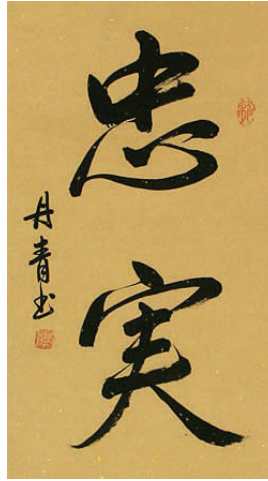 忠実
丹青书